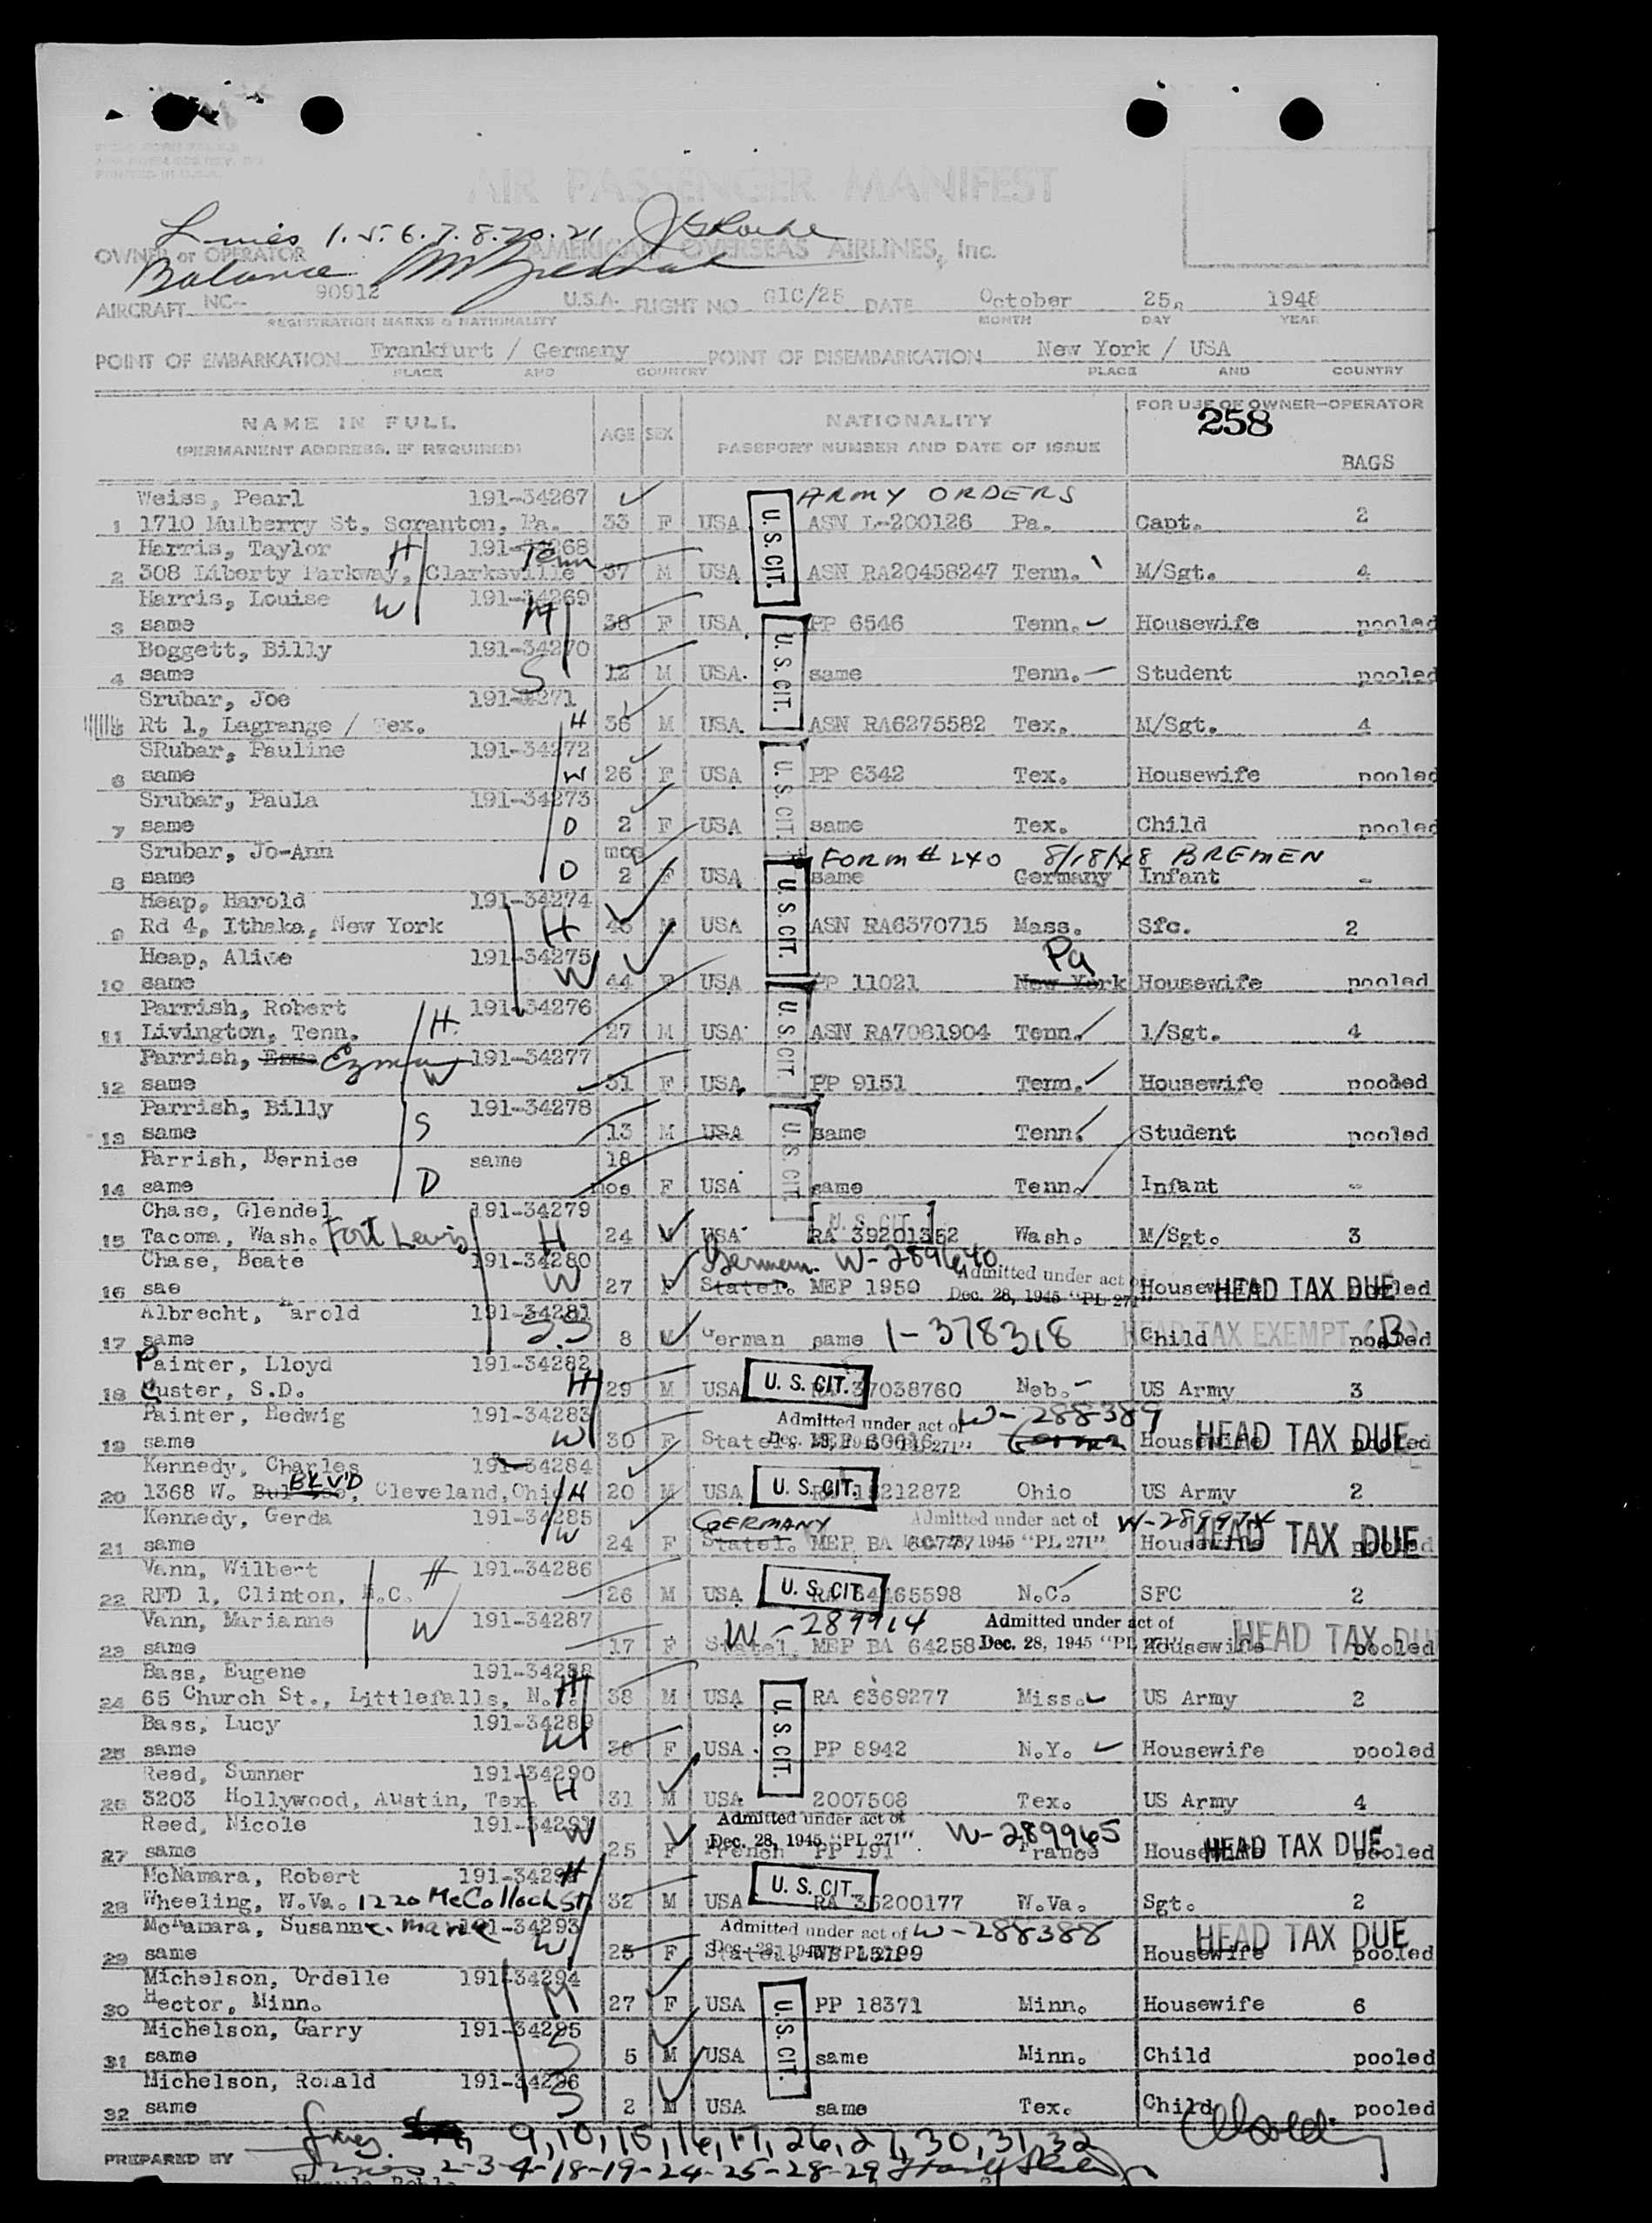 AIR PASSENGER MANIFEST
Lines 1.5.6.7.8.20.21
OWNER or OPERATOR AMERICAN OVERSEAS AIRLINES, Inc.
Balance
AIRCRAFT NC- 90912 U.S.A. FLIGHT NO GIC/25 DATE October 25, 1948
REGISTRATION MARKS & NATIONALITY MONTH DAY YEAR
POINT OF EMBARKATION Frankfurt / Germany POINT OF DISEMBARKATION New York / USA
PLACE AND COUNTRY PLACE AND COUNTRY
NAME IN FULL AGE SEX NATIONALITY FOR USE OF OWNER-OPERATOR
258
(PERMANENT ADDRESS, IF REQUIRED) PASSPORT NUMBER AND DATE OF ISSUE
BAGS
Weiss, Pearl 191-34267 ARMY ORDERS
1 1710 Mulberry St, Scranton, Pa. 33 F USA U.S. CIT. ASN L-200126 Pa. Capt. 2
Harris, Taylor H 191-34268 Tenn
2 308 Liberty Parkway, Clarksville 37 M USA ASN RA20458247 Tenn. M/Sgt. 4
Harris, Louise W 191-34269 M
3 same 38 F USA U.S. CIT. PP 6546 Tenn. Housewife pooled
Boggett, Billy 191-34270
4 same S 12 M USA. same Tenn. Student pooled
Srubar, Joe 191-34271
Rt 1, Lagrange / Tex. H 36 M USA ASN RA6275582 Tex. M/Sgt. 4
SRubar, Pauline 191-34272
6 same W 26 F USA U.S. CIT. PP 6342 Tex. Housewife pooled
Srubar, Paula 191-34273
7 same D 2 F USA same Tex. Child pooled
Srubar, Jo-Ann mos FORM # 240 8/18/48 BREMEN
8 same D 2 F USA same Germany Infant -
Heap, Harold 191-34274
9 Rd 4, Ithaka, New York H 45 M USA U.S. CIT. ASN RA6370715 Mass. Sfc. 2
Heap, Alice 191-34275 Pa
10 same W 44 F USA PP 11021 New York Housewife pooled
Parrish, Robert 191-34276
11 Livington, Tenn. H. 27 M USA U.S. CIT. ASN RA7081904 Tenn. 1/Sgt. 4
Parrish, Ezma 191-34277
12 same W 31 F USA. PP 9151 Tenn. Housewife pooled
Parrish, Billy 191-34278
13 same S 13 M USA U.S. CIT. same Tenn. Student pooled
Parrish, Bernice same 18
14 same D mos F USA same Tenn. Infant -
Chase, Glendel 191-34279 U.S. CIT.
15 Tacoma, Wash. Fort Lewis H 24 USA RA 39201352 Wash. M/Sgt. 3
Chase, Beate 191-34280 German W-289640 Admitted under act of
16 sae W 27 F Statel. MEP 1950 Dec. 28, 1945 "PL 271" Housewife HEAD TAX DUE pooled
Albrecht, Harold 191-34281
17 same S.S 8 M German same 1-378318 Child HEAD TAX EXEMPT (B) pooled
Painter, Lloyd 191-34282
18 Custer, S.D. H 29 M USA U.S. CIT. RA 37038760 Neb. US Army 3
Painter, Hedwig 191-34283 Admitted under act of W-288389
19 same W 30 F Statel. Dec. 28, 1945 "PL 271" German Housewife HEAD TAX DUE pooled
Kennedy, Charles 191-34284
20 1368 W. BLV'D, Cleveland, Ohio H 20 M USA U.S. CIT. 15212872 Ohio US Army 2
Kennedy, Gerda 191-34285 GERMANY Admitted under act of W-289974
21 same W 24 F Statel. MEP BA 60777 Dec. 28, 1945 "PL 271" Housewife HEAD TAX DUE pooled
Vann, Wilbert H 191-34286
22 RFD 1, Clinton, N.C. 26 M USA U.S. CIT. RA 34465598 N.C. SFC 2
Vann, Marianne W 191-34287 W-289914 Admitted under act of
23 same 17 F Statel. MEP BA 64258 Dec. 28, 1945 "PL 271" Housewife HEAD TAX DUE pooled
Bass, Eugene 191-34288
24 65 Church St., Littlefalls, N.Y. H 38 M USA U.S. CIT. RA 6369277 Miss. US Army 2
Bass, Lucy 191-34289
25 same W 36 F USA PP 8942 N.Y. Housewife pooled
Reed, Sumner 191-34290
26 3203 Hollywood, Austin, Tex. H 31 M USA 2007508 Tex. US Army 4
Reed, Nicole 191-34291 Admitted under act of W-289965
27 same W 25 F French Dec. 28, 1945 "PL 271" PP 191 France Housewife HEAD TAX DUE pooled
McNamara, Robert 191-34292 H
28 Wheeling, W.Va. 1220 McColloch St 32 M USA U.S. CIT. RA 35200177 W.Va. Sgt. 2
McNamara, Susanne. Marie 191-34293 Admitted under act of W-288388
29 same W 25 F Statel. Dec. 28, 1945 "PL 271" Housewife HEAD TAX DUE pooled
Michelson, Ordelle 191-34294
30 Hector, Minn. M 27 F USA U.S. CIT. PP 18371 Minn. Housewife 6
Michelson, Garry 191-34295
31 same S 5 M USA same Minn. Child pooled
Michelson, Ronald 191-34296
32 same S 2 M USA same Tex. Child pooled
lines 9,10,15,16,17,26,27,30,31,32
PREPARED BY
Lines 2-3-4-18-19-24-25-28-29